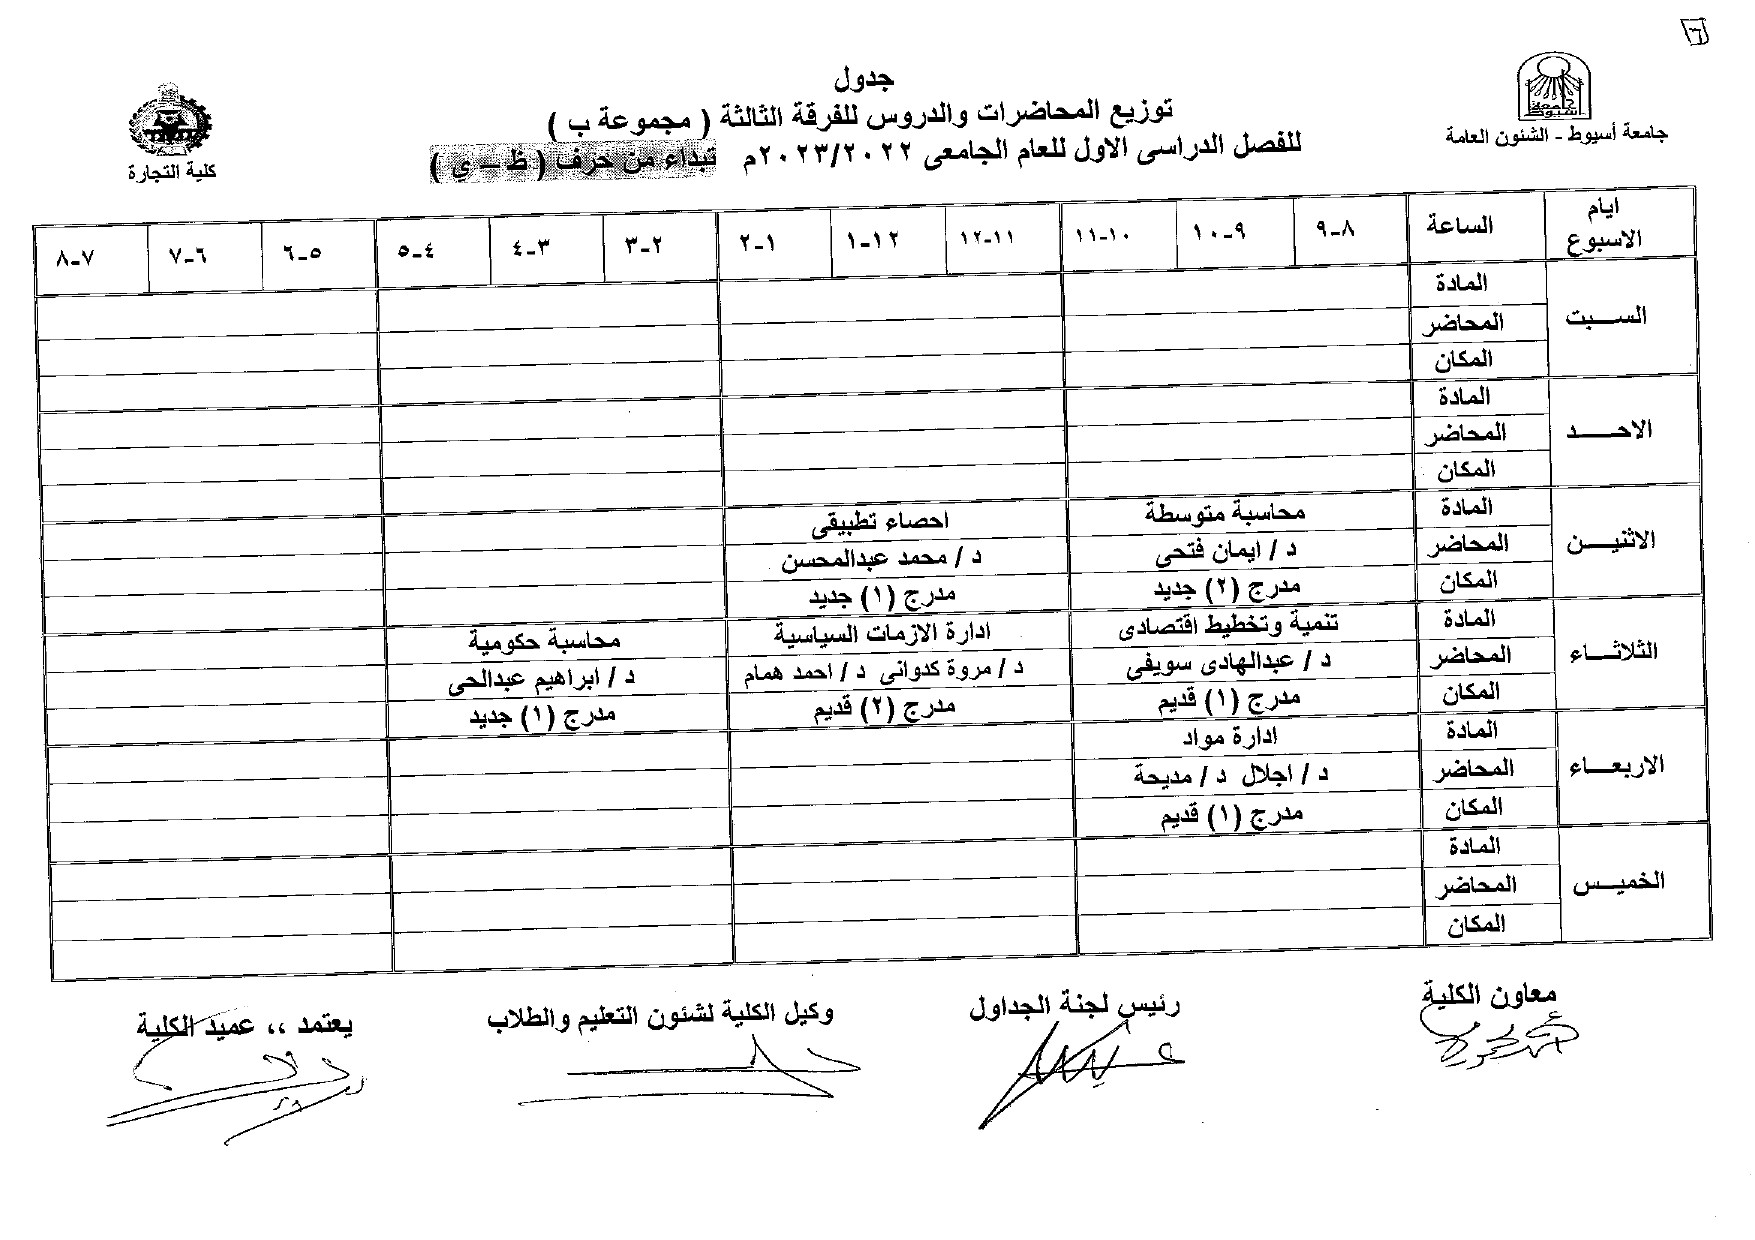 ٦
جامعة أسيوط
جامعة أسيوط - الشئون العامة
كلية التجارة
جدول
توزيع المحاضرات والدروس للفرقة الثالثة ( مجموعة ب )
للفصل الدراسى الاول للعام الجامعى ٢٠٢٣/٢٠٢٢م تبداء من حرف ( ظ – ي )
ايام الاسبوع الساعة ٨-٩ ٩-١٠ ١٠-١١ ١١-١٢ ١٢-١ ١-٢ ٢-٣ ٣-٤ ٤-٥ ٥-٦ ٦-٧ ٧-٨
السبت
المادة
المحاضر
المكان
الاحد
المادة
المحاضر
المكان
الاثنين
المادة محاسبة متوسطة احصاء تطبيقى
المحاضر د / ايمان فتحى د / محمد عبدالمحسن
المكان مدرج (٢) جديد مدرج (١) جديد
الثلاثاء
المادة تنمية وتخطيط اقتصادى ادارة الازمات السياسية محاسبة حكومية
المحاضر د / عبدالهادى سويفى د / مروة كدوانى د / احمد همام د / ابراهيم عبدالحى
المكان مدرج (١) قديم مدرج (٢) قديم مدرج (١) جديد
الاربعاء
المادة ادارة مواد
المحاضر د / اجلال د / مديحة
المكان مدرج (١) قديم
الخميس
المادة
المحاضر
المكان
معاون الكلية رئيس لجنة الجداول وكيل الكلية لشئون التعليم والطلاب يعتمد ،، عميد الكلية